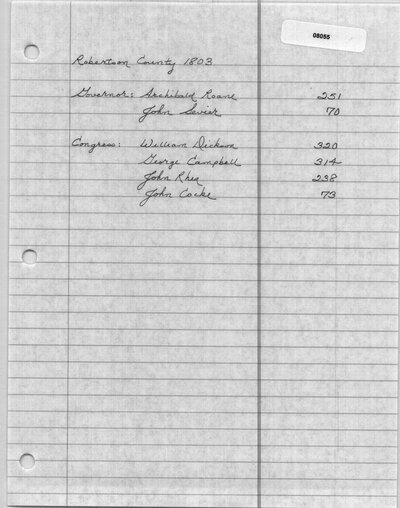 08055
Robertson County 1803
Governor: Archibald Roane 251
John Sevier 70
Congress: William Dickson 320
George Campbell 314
John Rhea 238
John Cocke 73